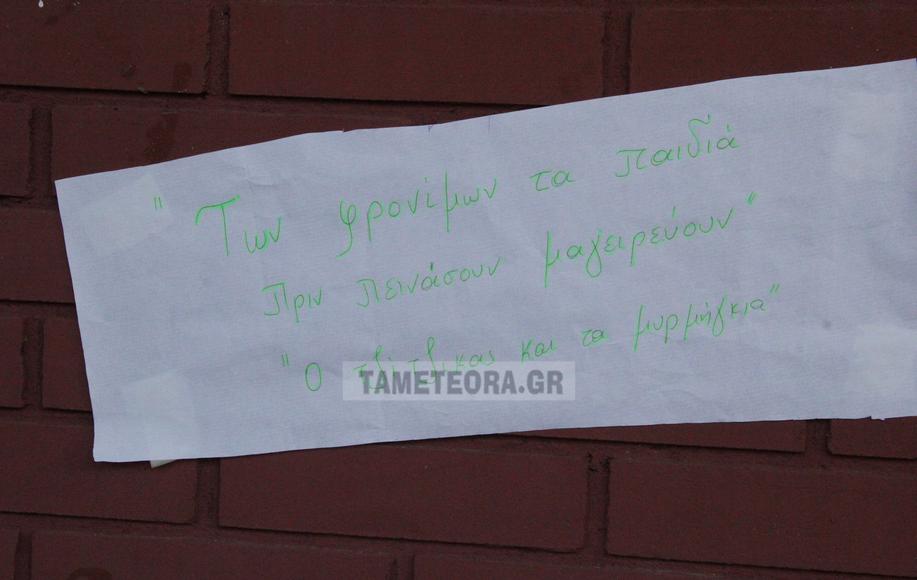 " Των φρονίμων τα παιδιά
πριν πεινάσουν μαγειρεύουν "
" Ο τζίτζικας και τα μυρμήγκια "
TAMETEORA.GR